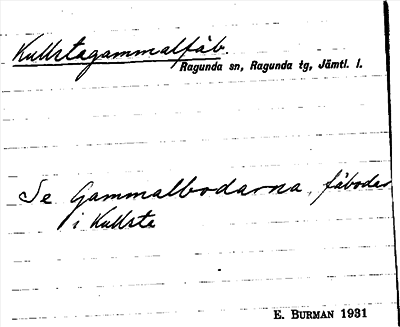 Kullstagammalfäb.
Ragunda sn, Ragunda tg, Jämtl. l.
Se Gammalbodarna, fäbodar
i Kullsta
E. Burman 1931